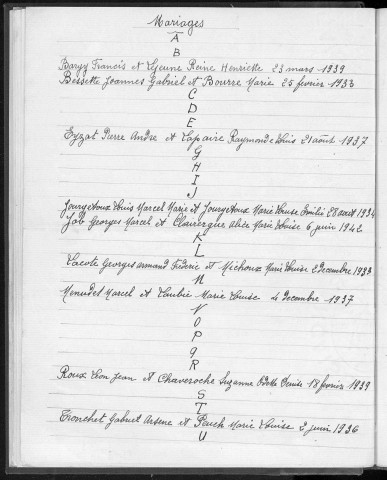 Mariages
A
B
Bargy Francis et Lejeune Reine Henriette 23 mars 1939
Bessette Joannes Gabriel et Bourre Marie 25 fevrier 1933
C
D
E
Eyzat Pierre Andre et Lapaire Raymonde Louis 21 août 1937
G
H
I
J
Jourgetoux Louis Marcel Marie et Jourgetoux Marie Louise Emilie 28 août 1934
Job Georges Marcel et Clavergue Alice Marie Louise 6 juin 1942
K
L
Lacote Georges Armand Frederic et Michoux Marie Louise 2 Decembre 1933
M
Menudet Marcel et Loubie Marie Louise 4 decembre 1937
N
O
P
Q
R
Roux Leon Jean et Chaveroche Suzanne Odette Denise 18 fevrier 1939
S
T
Tronchet Gabriel Arsene et Pauch Marie Louise 2 juin 1936
U